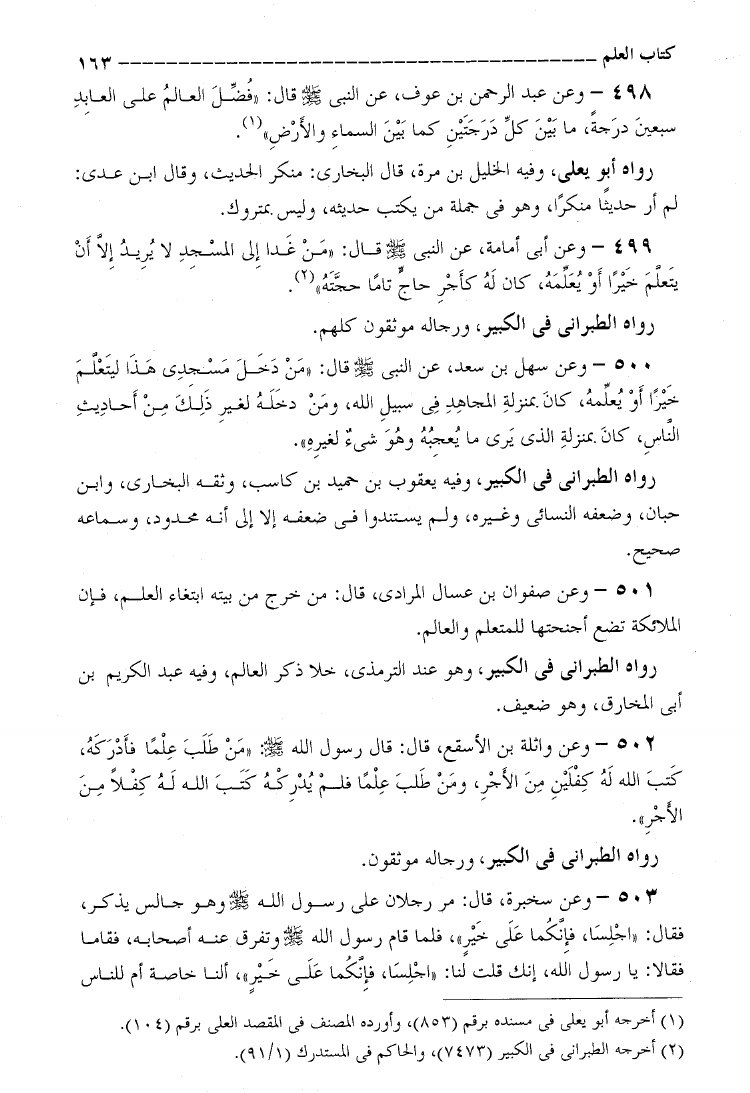 كتاب العلم ــــــــــــــــــــــــــــــــــــــــــــــــــــــــــــ ١٦٣
٤٩٨ – وعن عبد الرحمن بن عوف، عن النبى ﷺ قال: «فُضِّلَ العالمُ على العابدِ
سبعينَ درَجةً، ما بَيْنَ كلِّ دَرَجَتَيْنِ كما بَيْنَ السماءِ والأَرْضِ»(١).
رواه أبو يعلى، وفيه الخليل بن مرة، قال البخارى: منكر الحديث، وقال ابن عدى:
لم أر حديثًا منكرًا، وهو فى جملة من يكتب حديثه، وليس بمتروك.
٤٩٩ – وعن أبى أمامة، عن النبى ﷺ قال: «مَنْ غَدا إلى المسْجدِ لا يُريدُ إلاَّ أَنْ
يتعلَّمَ خَيْرًا أَوْ يُعَلِّمَهُ، كان لَهُ كأَجْرِ حاجٍّ تامًا حجَّتَهُ»(٢).
رواه الطبرانى فى الكبير، ورجاله موثقون كلهم.
٥٠٠ – وعن سهل بن سعد، عن النبى ﷺ قال: «مَنْ دَخَلَ مَسْجدِى هَذا ليتَعْلَّمَ
خيْرًا أَوْ يُعلِّمهُ، كانَ بمنزلةِ المجاهدِ فِى سبيلِ الله، ومَنْ دخلَهُ لغيرِ ذَلِكَ مِنْ أحاديثِ
النَّاسِ، كانَ بمنزلةِ الذى يَرى ما يُعجبُهُ وهُوَ شىءٌ لغيرِهِ».
رواه الطبرانى فى الكبير، وفيه يعقوب بن حميد بن كاسب، وثقه البخارى، وابن
حبان، وضعفه النسائى وغيره، ولم يستندوا فى ضعفه إلا إلى أنه محدود، وسماعه
صحيح.
٥٠١ – وعن صفوان بن عسال المرادى، قال: من خرج من بيته ابتغاء العلم، فإن
الملائكة تضع أجنحتها للمتعلم والعالم.
رواه الطبرانى فى الكبير، وهو عند الترمذى، خلا ذكر العالم، وفيه عبد الكريم بن
أبى المخارق، وهو ضعيف.
٥٠٢ – وعن واثلة بن الأسقع، قال: قال رسول الله ﷺ: «مَنْ طَلَبَ عِلْمًا فأَدْرَكَهُ،
كتَبَ الله لَهُ كِفْلَيْنِ مِنَ الأَجْرِ، ومَنْ طلَبَ عِلْمًا فلمْ يُدْرِكْهُ كَتَبَ الله لَهُ كِفْلاً مِنَ
الأَجْرِ».
رواه الطبرانى فى الكبير، ورجاله موثقون.
٥٠٣ – وعن سخبرة، قال: مر رجلان على رسول الله ﷺ وهو جالس يذكر،
فقال: «اجْلِسَا، فإِنَّكُما عَلَى خَيْرٍ»، فلما قام رسول الله ﷺ وتفرق عنه أصحابه، فقاما
فقالا: يا رسول الله، إنك قلت لنا: «اجْلِسَا، فإِنَّكُما عَلَى خَيْرٍ»، ألنا خاصة أم للناس
(١) أخرجه أبو يعلى فى مسنده برقم (٨٥٣)، وأورده المصنف فى المقصد العلى برقم (١٠٤).
(٢) أخرجه الطبرانى فى الكبير (٧٤٧٣)، والحاكم فى المستدرك (٩١/١).